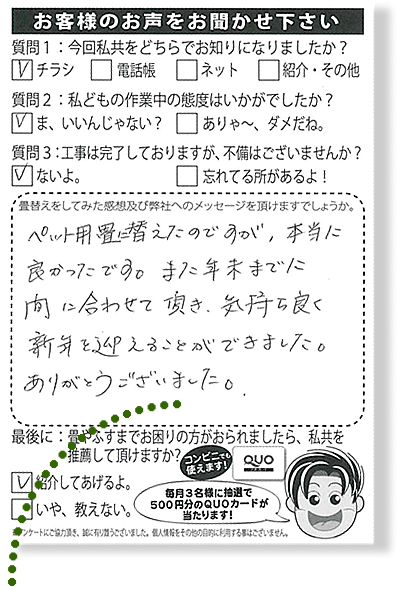 お客様のお声をお聞かせ下さい
質問1：今回私共をどちらでお知りになりましたか？
チラシ 電話帳 ネット 紹介・その他
質問2：私どもの作業中の態度はいかがでしたか？
ま、いいんじゃない？ ありゃ～、ダメだね。
質問3：工事は完了しておりますが、不備はございませんか？
ないよ。 忘れてる所があるよ！
畳替えをしてみた感想及び弊社へのメッセージを頂けますでしょうか。
ペット用畳に替えたのですが、本当に
良かったです。また年末までに
間に合わせて頂き、気持ち良く
新年を迎えることができました。
ありがとうございました。
最後に：畳やふすまでお困りの方がおられましたら、私共を
推薦して頂けますか？
コンビニでも
使えます！
QUO
紹介してあげるよ。
いや、教えない。
毎月3名様に抽選で
500円分のQUOカードが
当たります！
アンケートにご協力頂き、誠に有り難うございました。個人情報をその他の目的に利用する事はございません。